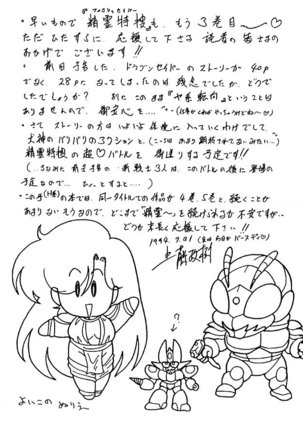 ・早いもので 精霊特捜も、もう3巻目〜♡
ただひたすらに、応援して下さる 読者の皆さまの
おかげでございます!!
・前日予告した、ドラゴンセイバーのストーリーが 40p
でなく、28pになってしまったのは 残念でしたが、どうで
したでしょうか? 別にこのまま"や系転向"ということは
ありませんので、御安心を……
・さて ストーリーの方は いよいよ 佳境に入っていくわけでして、
犬神のバリバリのヨクションと、
精霊特捜の超♡バトルを 街道りする予定です!!
(…ちなみに 前を予告の・新戦士3人は、このバトルの後に登場の
予定なので… ひょっとすると…)
・この手(H系)の本では、同一タイトルでの作品が 4巻、5巻と、続くことが
あまりないそうなので、どこまで"精霊〜"を続けれるか 不安ですが…
どうか 末長く応援して下さい!!
1994.7.01
?
↓
よいこの ぬりえ